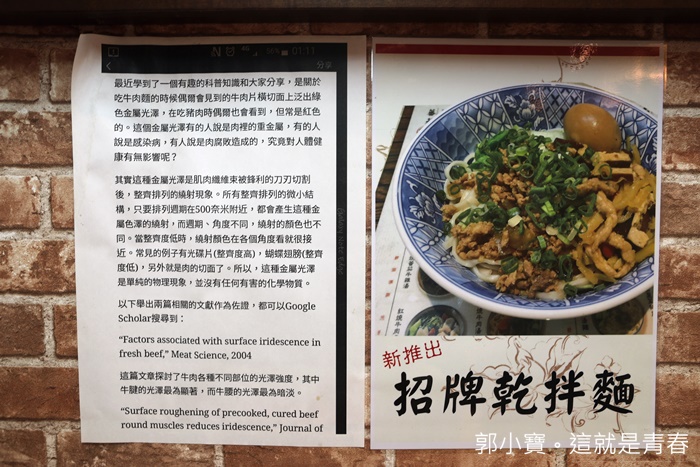 96%
01:11
分享
最近學到了一個有趣的科普知識和大家分享，是關於
吃牛肉麵的時候偶爾會見到的牛肉片橫切面上泛出綠
色金屬光澤，在吃豬肉時偶爾也會看到，但常是紅色
的。這個金屬光澤有的人說是肉裡的重金屬，有的人
說是感染病，有人說是肉腐敗造成的，究竟對人體健
康有無影響呢？
其實這種金屬光澤是肌肉纖維束被鋒利的刀刃切割
後，整齊排列的繞射現象。所有整齊排列的微小結
構，只要排列週期在500奈米附近，都會產生這種金
屬色澤的繞射，而週期、角度不同，繞射的顏色也不
同。當整齊度低時，繞射顏色在各個角度看就很接
近。常見的例子有光碟片(整齊度高)，蝴蝶翅膀(整齊
度低)，另外就是肉的切面了。所以，這種金屬光澤
是單純的物理現象，並沒有任何有害的化學物質。
以下舉出兩篇相關的文獻作為佐證，都可以Google
Scholar搜尋到：
“Factors associated with surface iridescence in
fresh beef,” Meat Science, 2004
這篇文章探討了牛肉各種不同部位的光澤強度，其中
牛腱的光澤最為顯著，而牛腰的光澤最為暗淡。
“Surface roughening of precooked, cured beef
round muscles reduces iridescence,” Journal of
新推出
招牌乾拌麵
郭小寶。這就是青春